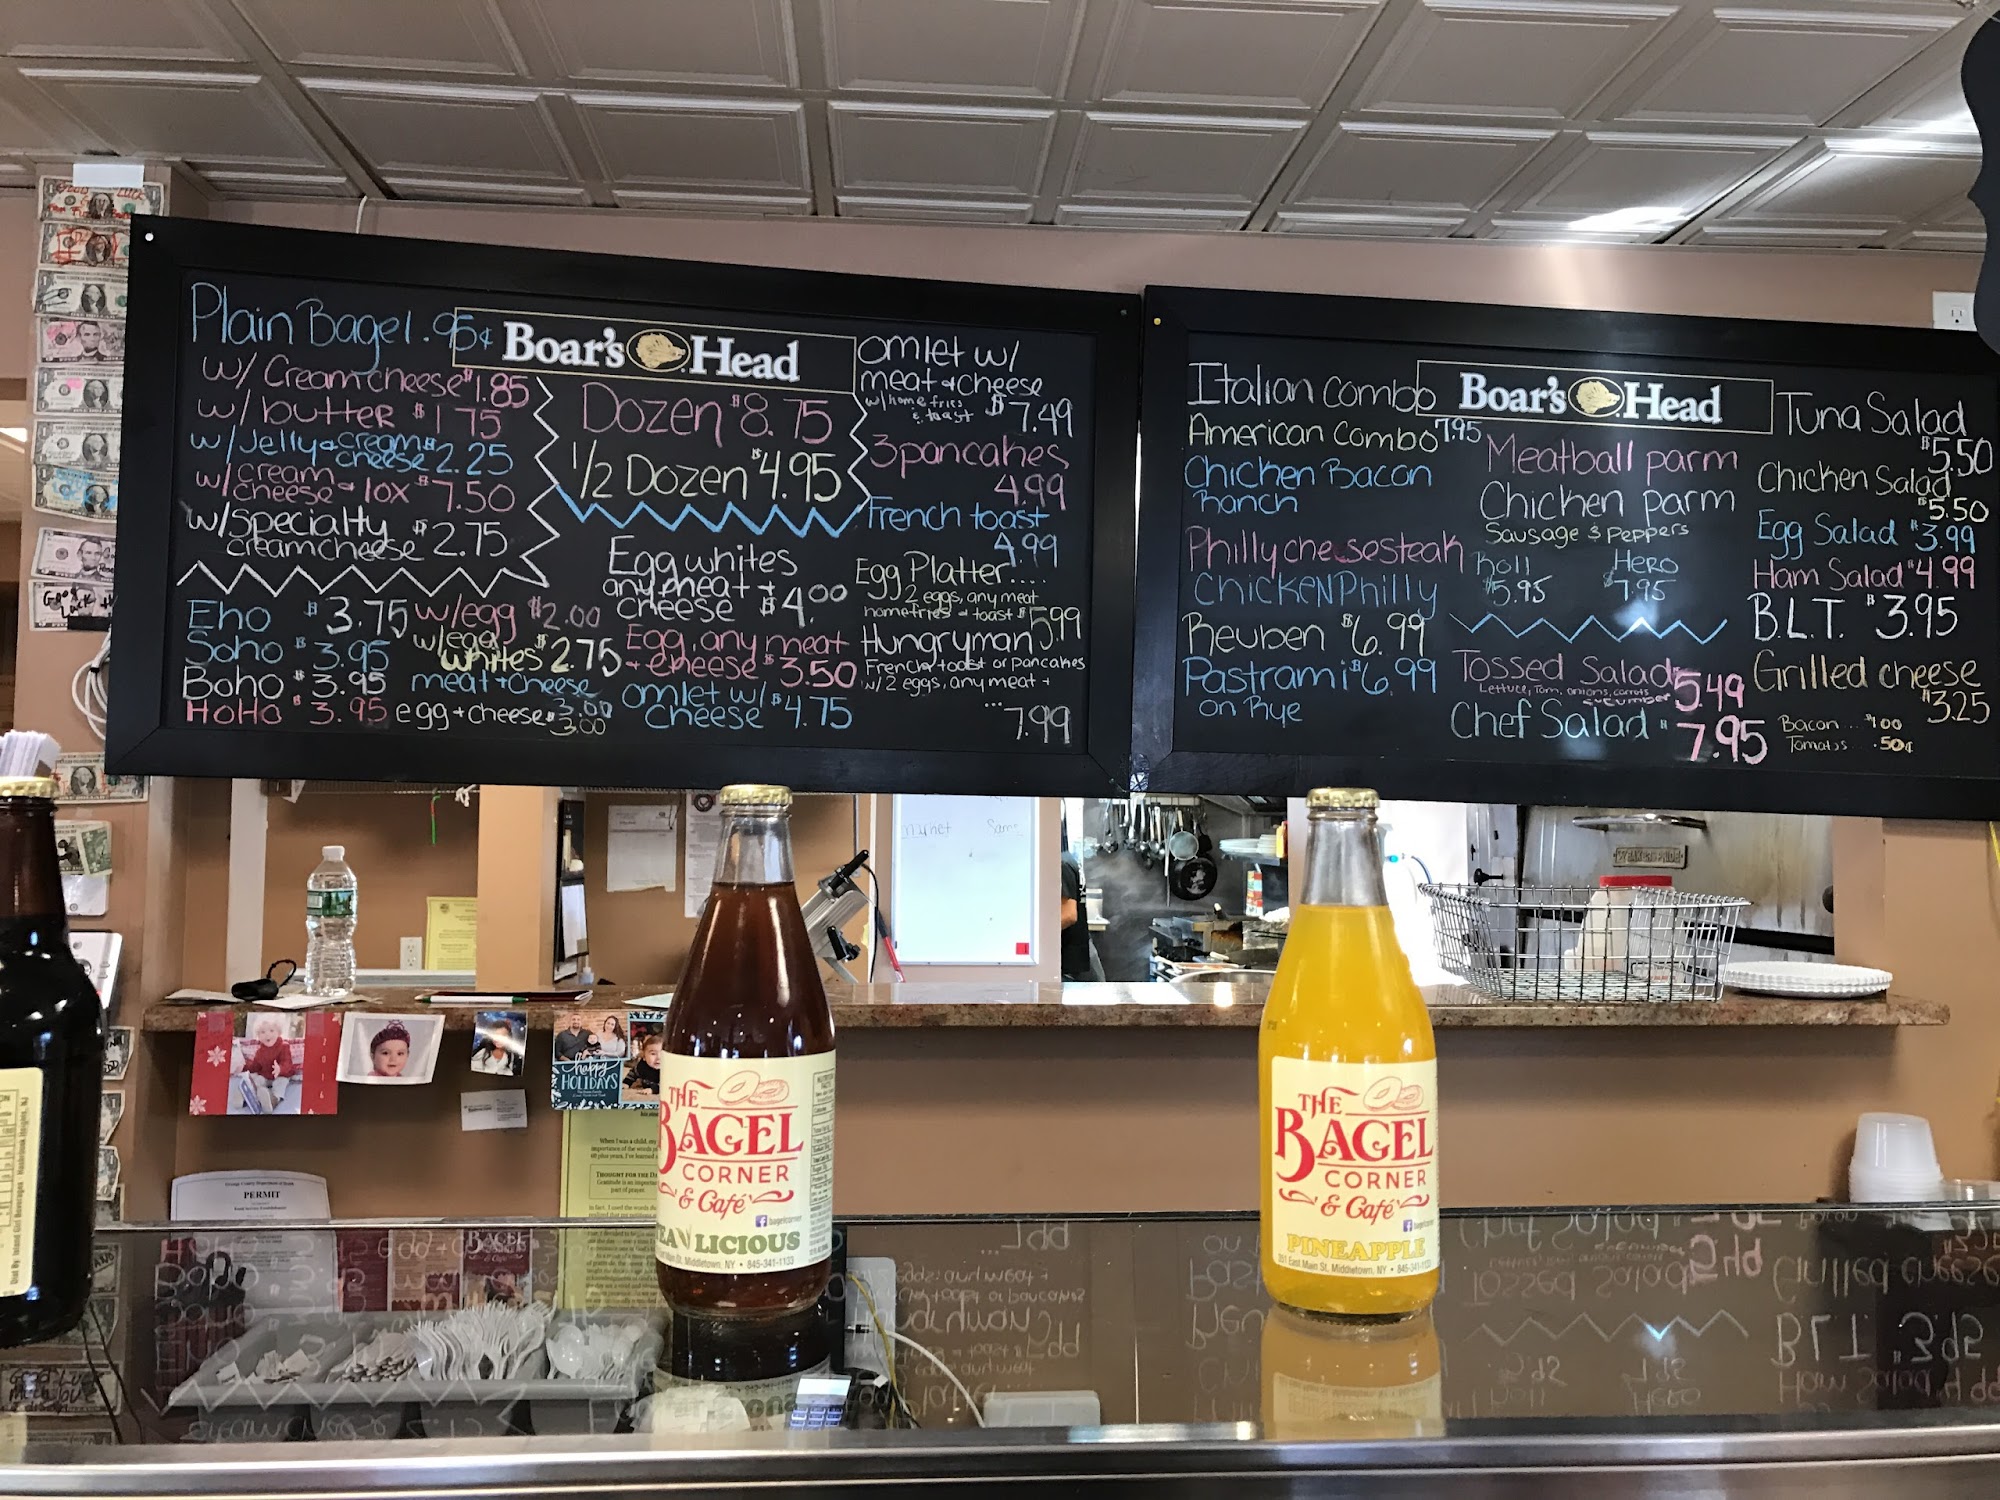 Plain Bagel .95¢
w/ Cream cheese $1.85
w/ butter $1.75
w/ Jelly & cream cheese $2.25
w/ cream cheese & lox $7.50
w/ specialty creamcheese $2.75
Eho $3.75
Soho $3.95
Boho $3.95
HoHo $3.95
w/egg $2.00
w/egg whites $2.75
meat + cheese 3.00
egg + cheese $3.00
Boar's Head
Dozen $8.75
1/2 Dozen $4.95
Egg whites
any meat +
cheese $4.00
Egg, any meat
+ cheese $3.50
omlet w/
cheese $4.75
omlet w/
meat & cheese
w/ home fries
& toast $7.49
3 pancakes
4.99
French toast
4.99
Egg Platter....
2 eggs, any meat
homefries & toast $5.99
Hungryman
French toast or pancakes
w/ 2 eggs, any meat +
...
7.99
Italian combo
American Combo 7.95
Chicken Bacon
Ranch
Philly cheesesteak
Chicken Philly
Reuben $6.99
Pastrami $6.99
on Rye
Boar's Head
Meatball parm
Chicken parm
Sausage & Peppers
Roll Hero
$5.95 $7.95
Tossed Salad 5.49
Lettuce, Tom, onions, carrots
cucumber
Chef Salad 7.95
Tuna Salad
$5.50
Chicken Salad
$5.50
Egg Salad $3.99
Ham Salad $4.99
B.L.T. $3.95
Grilled cheese
$3.25
Bacon ... $1.00
Tomatos .. .50¢
happy
HOLIDAYS
PERMIT
When I was a child, my
THOUGHT FOR THE DA
THE
BAGEL
CORNER
& Café
bagelcorner
LICIOUS
Main St, Middletown, NY • 845-341-1133
THE
BAGEL
CORNER
& Café
bagelcorner
PINEAPPLE
351 East Main St, Middletown, NY • 845-341-1133